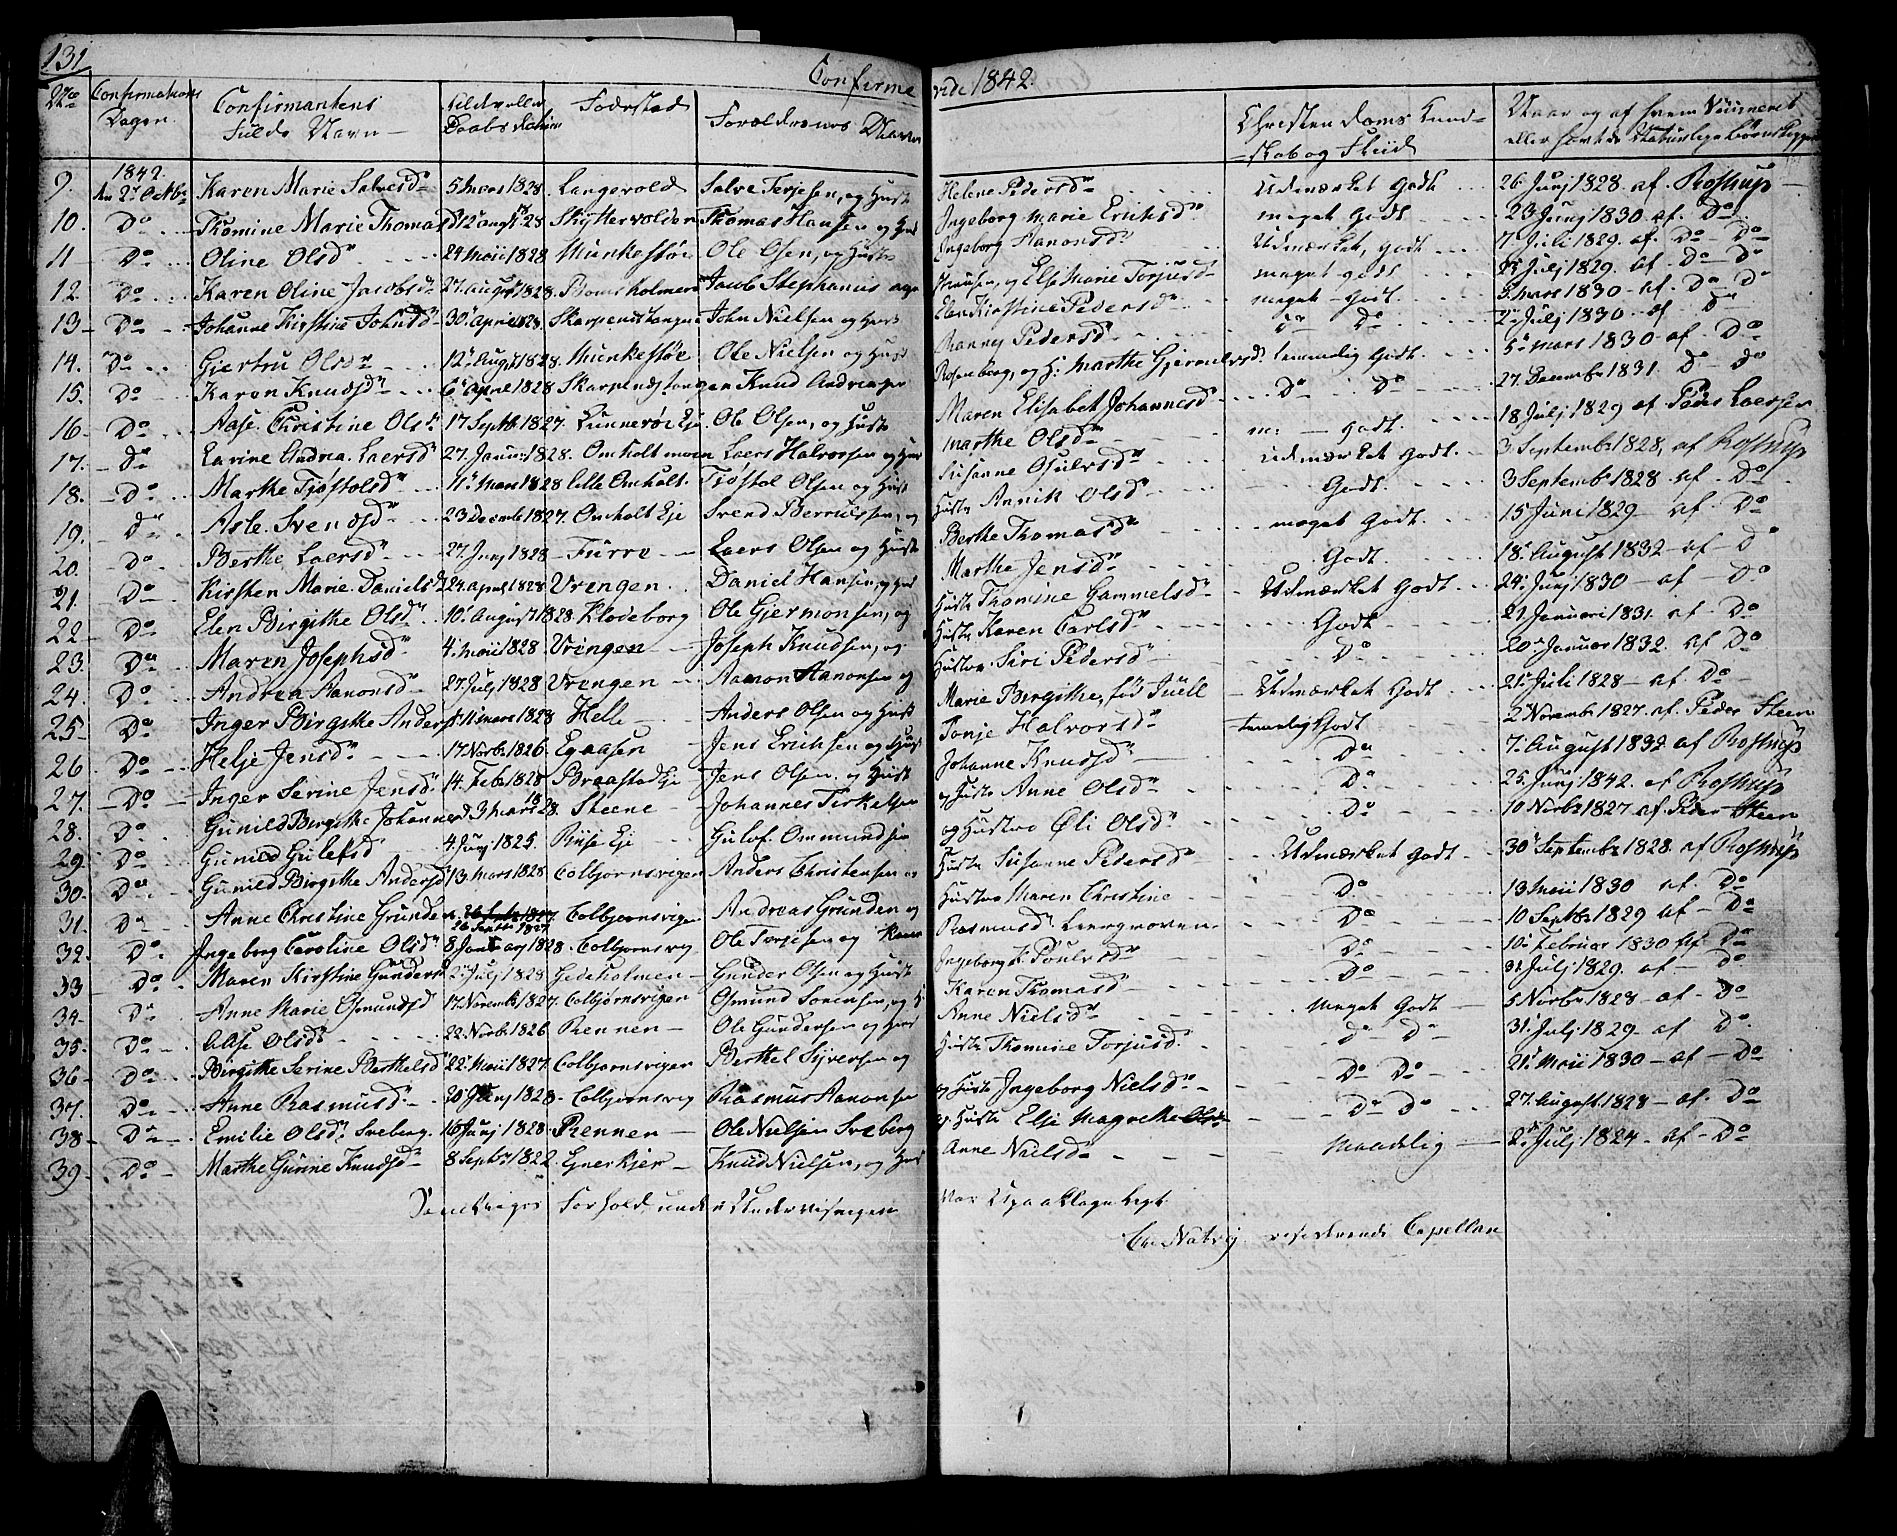 131
Confirmerede 1842.
No Confirmations Dagen. Confirmantens Fulde Navn Alder eller Daabs Datum Fødested Forældrenes Navne Christendoms Kundskab og Fliid Naar og af hvem Vaccineret eller havte Naturlige Børnekopper
1842.
9. den 2den Octbr Karen Marie Salvesd 5 Mars 1828 Langevold Salve Terjesen, og Hust Helene Pedersd Udmærket Godt 26 Junj 1828 af Rostrup
10. Do Thomine Marie Thomasd 12 augst 1828 Thomas Hansen og Hust Ingeborg Marie Eriksd meget Godt 23 Junj 1830 af Do
11 Do Oline Olsd 29 Maii 1828 Munkessøe Ole Olsen, og Hust Ingeborg Aanonsd Udmærket, godt 7 Juli 1829. af Do Do
12. Do Karen Oline Jacobsd 27. August 1828. Jacob Stephanus Hansen, og Else Marie Torjusd meget godt Julj 1829. af Do Do
13 Do Johanne Kirstine Johnsd 30 April 1828. Skarpendstangen John Nielsen og Hust Elen Kirstine Pedersd meget Godt 5 Mars 1830 af Do Do
14. Do Gjertru Olsd 12 August 1828. Munkessøe Ole Nielsen og Hust Manney Pedersd Do Do 2 Julj 1830. af Do
15. Do Karen Knudsd 6 April 1828 Skarpendstangen Knud Andreas Rosenberg, og H: Marthe temmelig Godt. 5 Mars 1830 af Do
16 Do Aase Christine Olsd 17 Septbr 1827. Lunnerøe Eje. Ole Olsen, og Hust Maren Elisabet Johannesd Do Do 27. December 1831. Do Do
17. Do Larine Andrea Laersd 27. Januar 1828. Omholtmoen Laers Halvorsen og Hust Marthe Olsd m: Godt. 18 Julj 1829 af Peder Laersen
18. Do Marthe Tjøstolsd 11 Mars 1828 lille Omholt. Tjøstol Olsen og Hust Susanne Udmærket Godt. 3 Septembr 1828, af Rostrup
19. Do Asle Svendsd 23 Decembr 1827. Omholt Eje Svend og Hustr Annik Olsd Godt. 3 Septembr 1828 af Do
20. Do Berthe Laersd 27. Junj 1828 Furre Laers Olsen og Hust Berthe Thomasd meget Godt. 15 Juni 1829 af Do
21. Do Kirsten Marie Danielsd 29. april 1828 Vrengen Daniel Hansen, og Hust Marthe Jensd Godt. 18 August 1832 af Do
22 Do Elen Birgithe Olsd 10 August 1828. Klodeborg Ole Gjermonsen, og Hustr Thomine Gammelsd Udmærket Godt 24 Junj 1830 af Do
23. Do Maren Josephsd 4. Maii 1828 Vringen Joseph Knudsen, og Hustr Karen Carlsd Godt 21 Januari 1831. af Do
24. Do Andrea Aanonsd 27 Julj 1828 Vrengen Aanon Aanonsen og Hustroe Siri Pedersd Do 20 Januar 1832. af Do
25 Do Inger Birgithe Andersd 11 Mars 1828 Helle Anders Olsen og Hust Marie Birgithe, fød Juell Udmærket Godt 21 Juli 1828 af Do
26 Do Helje Jensd 17 Novbr 1826. Egaasen Jens Erichsen og Hust Tonje Halvorsd temelig Godt 2 Novembr 1827. af Peder Steen
27. Do Inger Serine Jensd 14. Febr 1828 Braastad Eje Jens Olsen og Hust Johanne Knudsd Do 7 August 1832 af Rostrup
28. Do Gunild Birgithe Johannesd 3 Mars 1828 Steene Johannes Terkelsen og Hustr Anne Olsd Do 25 Junj 1842. af Rostrup
29. Do Gunild Gulefsd 4 Junj 1825. Riise Eje Gulof Ommundsen og Hustro Øli Olsd Do 10 Novbr 1827 af Peder Steen
30. Do Gunild Birgithe Andersd 13 Mars 1828 Colbjørnsvigen Anders Christensen og Hustr Susanne Pedersd Udmærket Godt 30 Septembr 1828 af Rostrup
31. Do Anne Christine Grunden 26 Septbr 1827. Colbjørnsvigen Andreas Grunden og Hustro Maren Christine Do 13 Maii 1830 af Do
32. Do Ingeborg Caroline Olsd 8 Januarj 1828. Colbjørnsvig Ole Terjesen og Karen Rasmusd Do 10 Septbr 1829 af Do
33 Do Maren Kirstine Gundersd 2 Julj 1828 Gedeholmen Gunder Olsen og Hust Ingeborg Poulsd Do 10 Februar 1830 af Do
34. Do Anne Marie Osmundsd 17. Novembr 1827. Colbjørnsvigen Osmund Sørensen, og H. Karen Thomasd Do 31 Julj 1829. af Do
35. Do Aase Olsd 22. Novbr 1826 Rennen Ole Gundersen og Hust Anne Nielsd Meget Godt 5 Novbr 1828 af Do
36 Do Birgithe Serine Berthelsd 22. Maii 1827 Colbjørnsvigen Berthel Syversen og Hustr Thomine Torjusd Do Do 31 Julj 1829 af Do
37. Do Anne Rasmusd 20 Junj 1828 Colbjørnsvig Rasmus Aanonsen og Hustr Ingeborg Nielsd Do Do 21 Maii 1830 af Do
38 Do Emilie Olsd Sveberg. 16 Junj 1828. Rennen Ole Nielsen Sveberg og Hustr Else Magrethe Olsd Do Do 27. August 1828 af Do
39. Do Marthe Gurine Knudsd 8 Septbr 1822 Knud Nielsen, og Hust Anne Nielsd Maadelig 2 Julj 1824 af Do
Samtliges Forhold under Underviisningen var Upaaklageligt
Natvig residerende Capellan